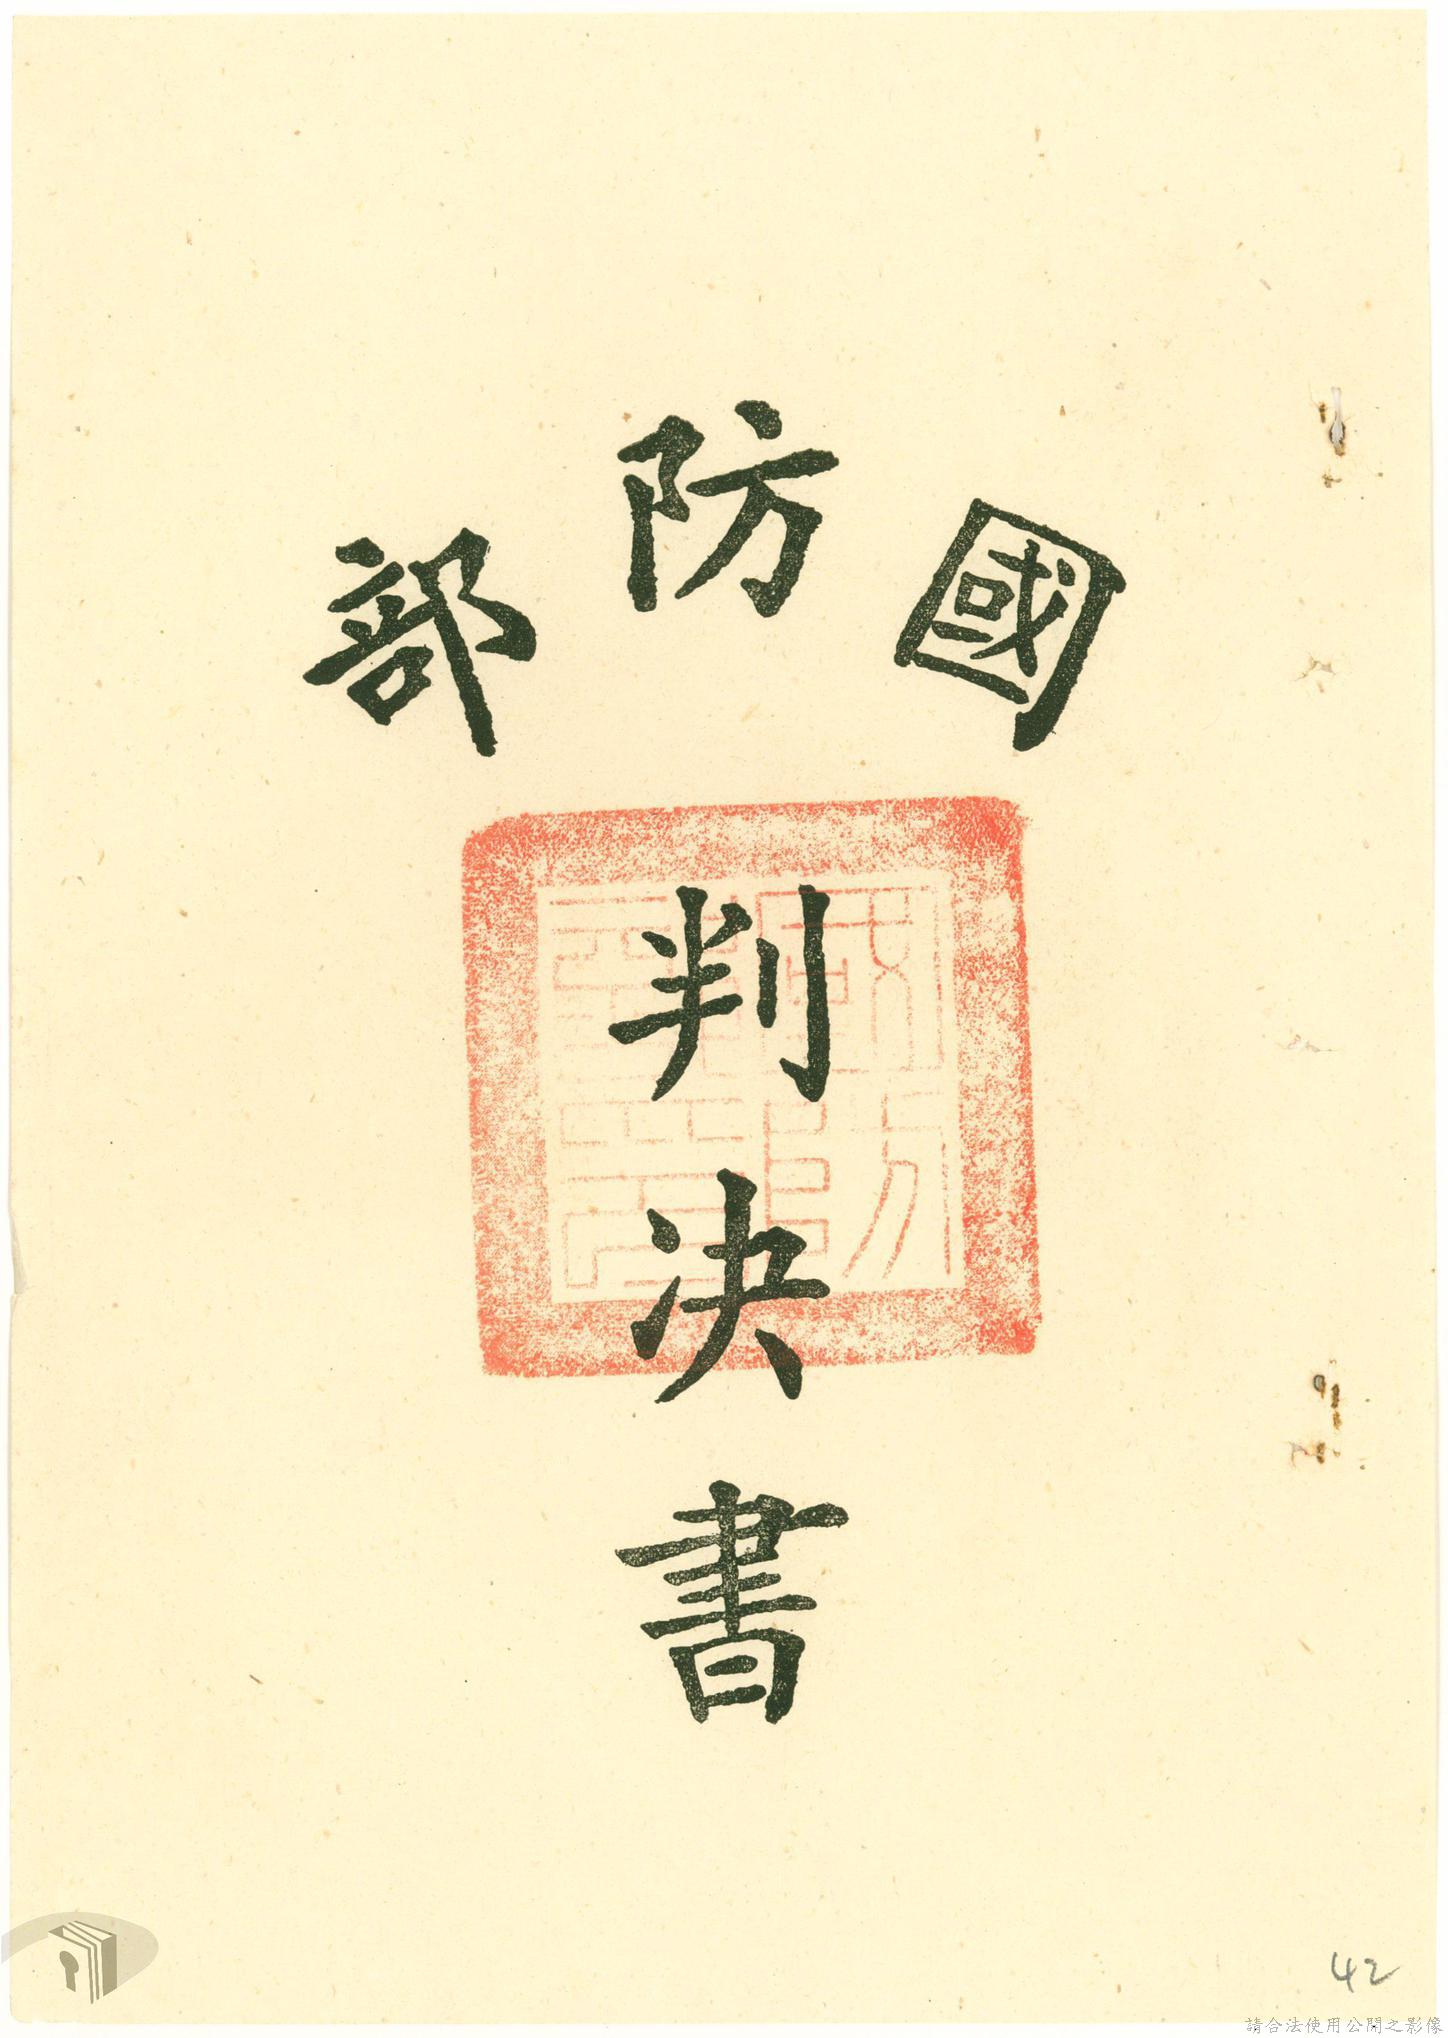 國防部
判決書
42
請合法使用公開之影像